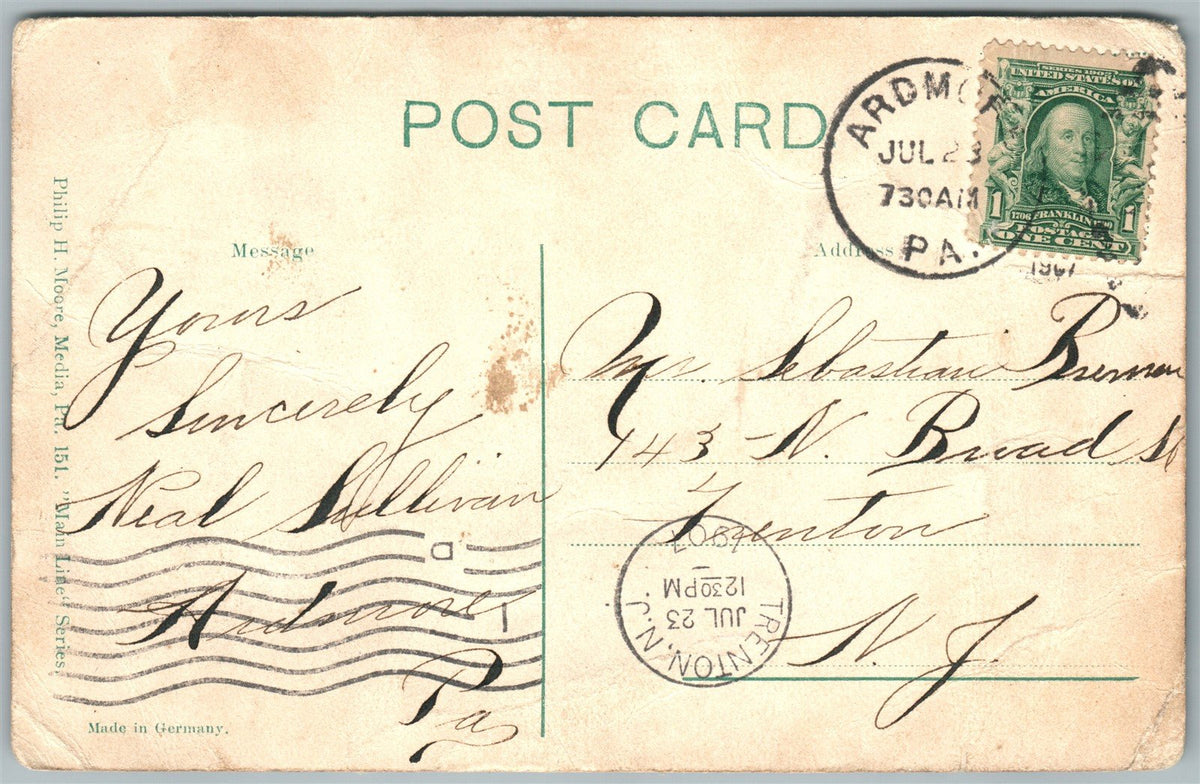 POST CARD
ARDMORE
JUL 23
730AM
PA.
1907
SERIES 1902
UNITED STATES OF
AMERICA
1 1
1706 FRANKLIN 1790
POSTAGE
ONE CENT
Message
Address
Yours
Sincerely
Neal Sullivan
Ardmore
Pa
Mr. Sebastian
143 N. Broad St
Trenton
N. J.
TRENTON, N.J.
JUL 23
1230PM
1907
D
1
Philip H. Moore, Media, Pa. 151. "Main Line" Series.
Made in Germany.